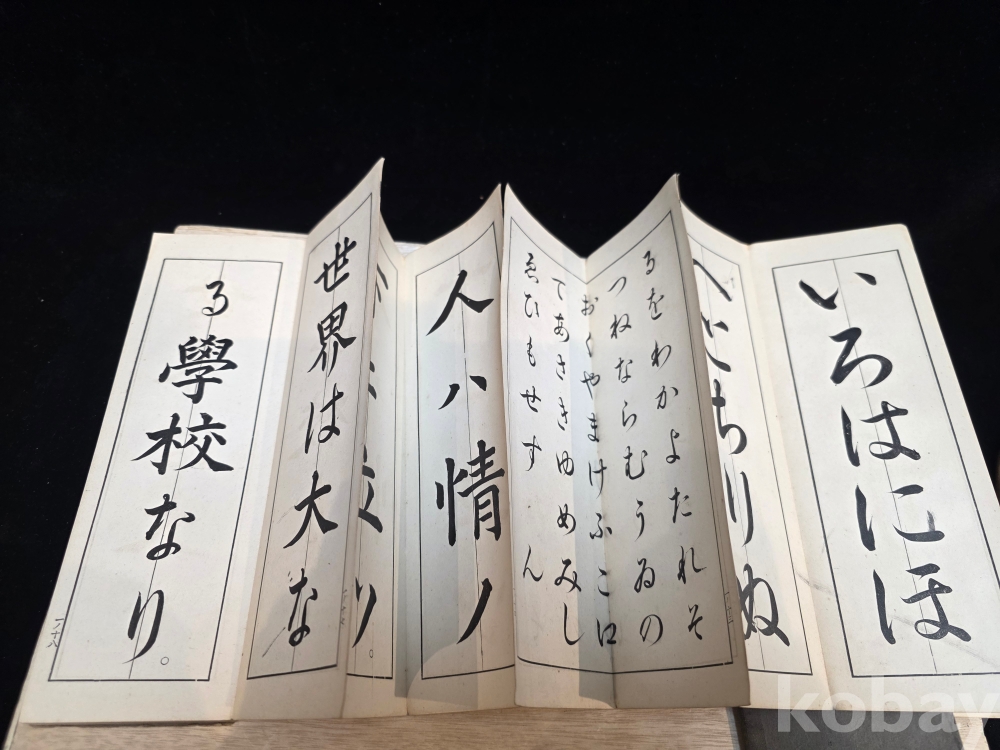 いろはにほ
へとちりぬ
るをわかよたれそ
つねならむうゐの
おくやまけふこえ
てあさきゆめみし
ゑひもせすん
人ハ情ノ
り。
世界は大な
る學校なり。
kobay